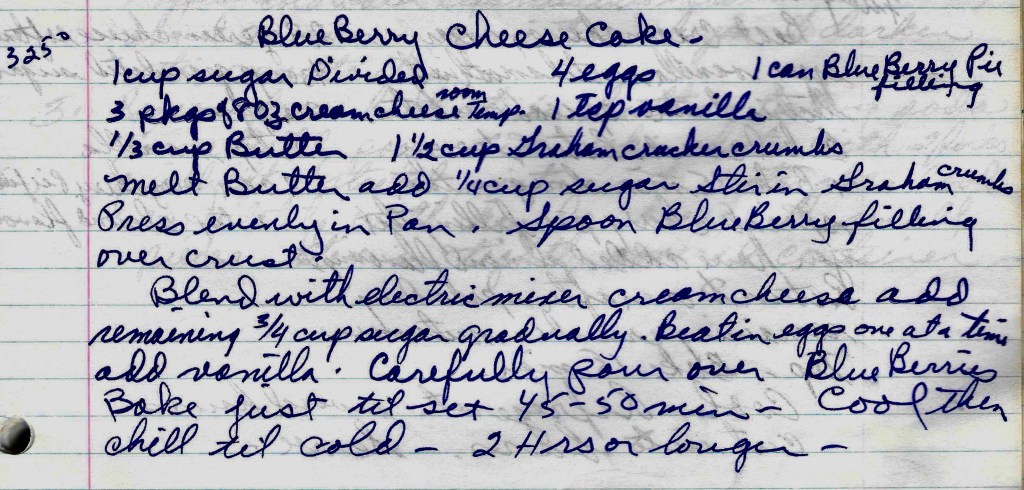 325°
BlueBerry Cheese Cake -
1 cup sugar Divided 4 eggs 1 can BlueBerry Pie filling
3 pkgs of 8 oz cream cheese room Temp. 1 Tsp vanilla
1/3 cup Butter 1 1/2 cup Graham cracker crumbs
melt Butter add 1/4 cup sugar Stir in Graham crumbs
Press evenly in Pan. Spoon BlueBerry filling
over crust.
Blend with electric mixer cream cheese add
remaining 3/4 cup sugar gradually. Beat in eggs one at a time
add vanilla. Carefully pour over BlueBerries
Bake just til set 45-50 min - Cool then
chill til cold - 2 Hrs or longer -